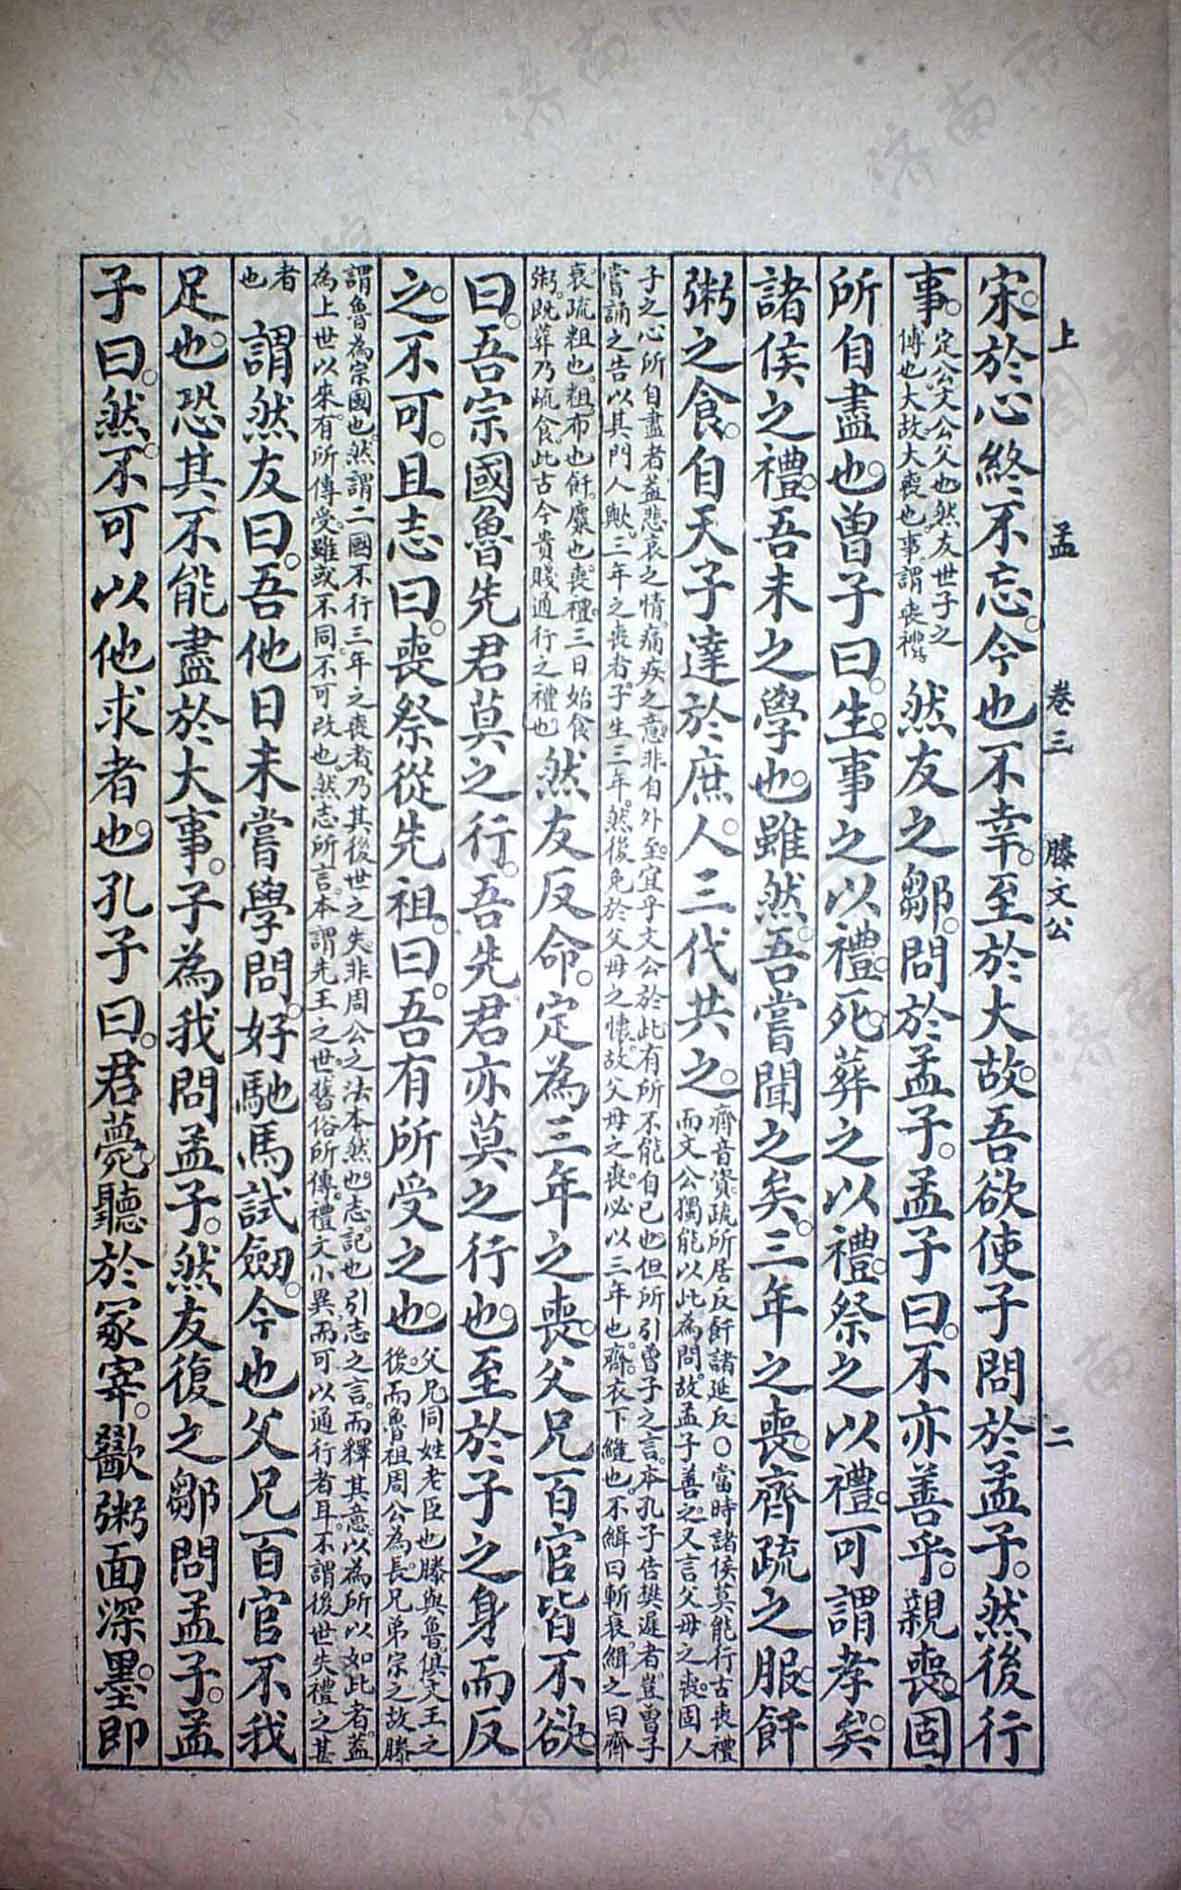 上孟 卷三 滕文公 二
宋。於心終不忘。今也不幸。至於大故。吾欲使子問於孟子。然後行
事。定公。文公父也。然友。世子之
傅也。大故。大喪也。事。謂喪禮。
然友之鄒。問於孟子。孟子曰。不亦善乎。親喪。固
所自盡也。曾子曰。生。事之以禮。死。葬之以禮。祭之以禮。可謂孝矣。
諸侯之禮。吾未之學也。雖然。吾嘗聞之矣。三年之喪。齊疏之服。飦
粥之食。自天子達於庶人。三代共之。
齊音資。疏所居反。飦諸延反。○當時諸侯莫能行古喪禮
而文公獨能以此為問。故孟子善之。又言父母之喪。固人
子之心所自盡者。蓋悲哀之情。痛疾之意。非自外至。宜乎文公於此有所不能自已也。但所引曾子之言。本孔子告樊遲者。豈曾子
嘗誦之告以其門人歟。三年之喪者。子生三年。然後免於父母之懷。故父母之喪。必以三年也。齊。衣下縫也。不緝曰斬衰。緝之曰齊
衰。疏。粗也。粗布也。飦。糜也。喪禮。三日始食
粥。既葬。乃疏食。此古今貴賤通行之禮也
然友反命。定為三年之喪。父兄百官皆不欲。
曰。吾宗國魯先君莫之行。吾先君亦莫之行也。至於子之身而反
之。不可。且志曰。喪祭從先祖。曰。吾有所受之也。
父兄。同姓老臣也。滕與魯。俱文王之
後。而魯祖周公為長。兄弟宗之。故滕
謂魯為宗國也。然謂二國不行三年之喪者。乃其後世之失。非周公之法本然也。志。記也。引志之言。而釋其意。以為所以如此者。蓋
為上世以來。有所傳受。雖或不同。不可改也。然志所言。本謂先王之世。舊俗所傳。禮文小異。而可以通行者耳。不謂後世失禮之甚
者
也
謂然友曰。吾他日未嘗學問。好馳馬試劒。今也父兄百官不我
足也。恐其不能盡於大事。子為我問孟子。然友復之鄒。問孟子。孟
子曰。然。不可以他求者也。孔子曰。君薨。聽於冢宰。歠粥面深墨。即